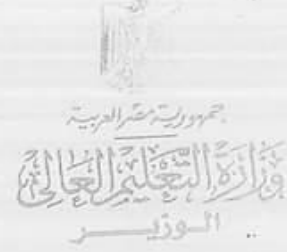 جمهورية مصر العربية
وزارة التعليم العالي
الوزير